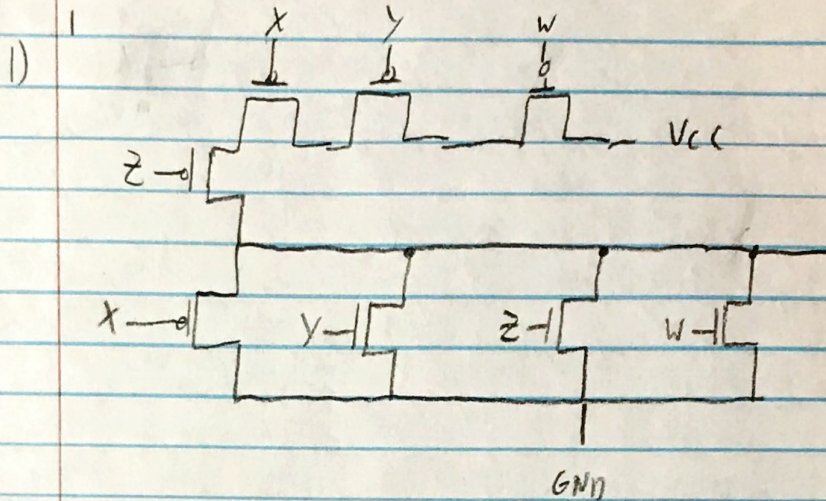 1
X Y W
1)
Z VCC
X Y Z W
GND